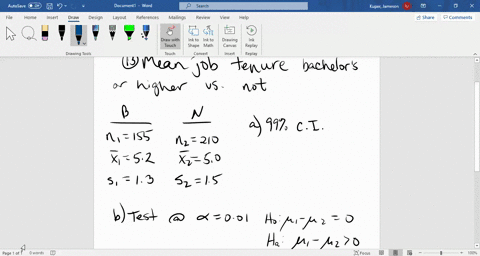 AutoSave Off Document1 - Word Search Kuipas, Jameson
File Home Insert Draw Design Layout References Mailings Review View Help Share Comments
Draw with Touch
Ink to Shape
Ink to Math
Drawing Canvas
Ink Replay
Drawing Tools Touch Convert Insert Replay
(13) Mean job tenure bachelor's
or higher vs. not
B N a) 99% C.I.
n₁=155 n₂=210
x̄₁=5.2 x̄₂=5.0
s₁=1.3 s₂=1.5
b) Test @ α=0.01 H₀: μ₁-μ₂=0
Hₐ: μ₁-μ₂>0
Page 1 of 1 0 words Focus